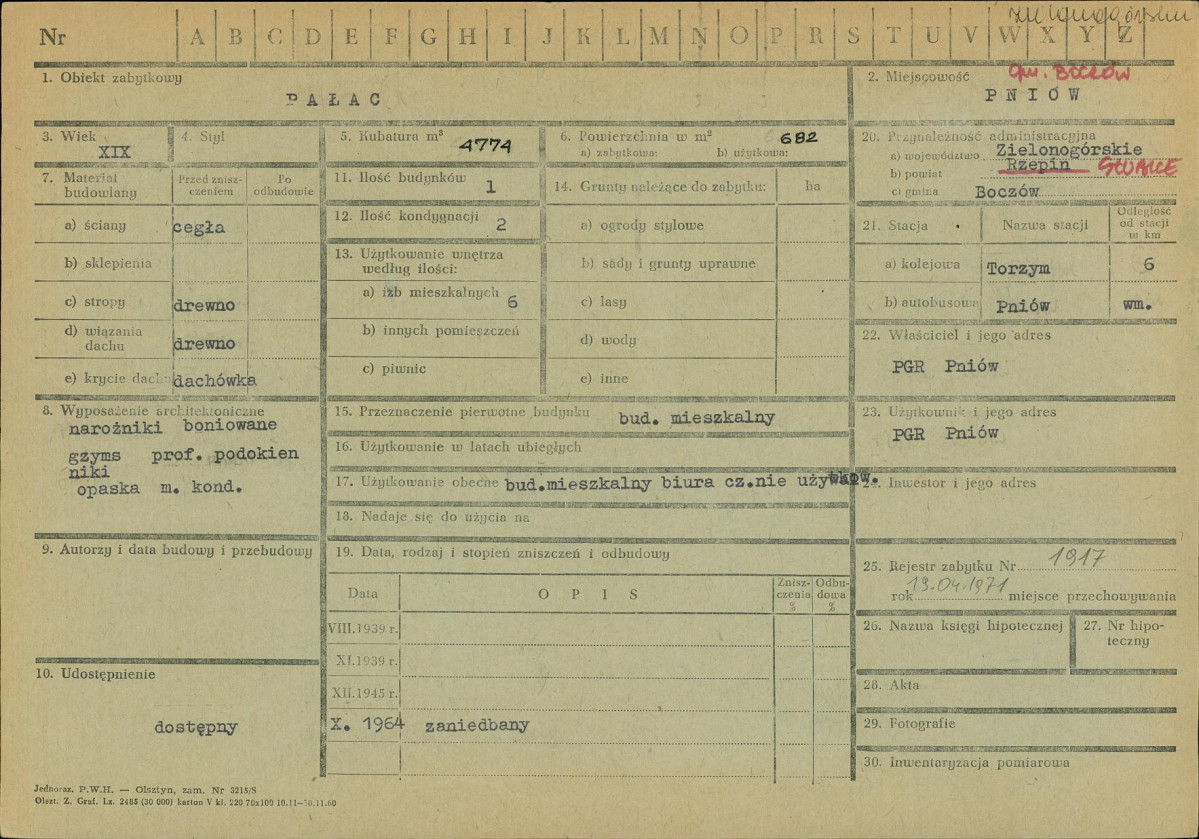 zielonogórskie
Nr A B C D E F G H I J K L M N O P R S T U V W X Y Z
1. Obiekt zabytkowy
PAŁAC
2. Miejscowość
gm. BOCZÓW
PNIÓW
3. Wiek
XIX
4. Styl
5. Kubatura m³ 4774
6. Powierzchnia w m² 682
a) zabytkowa: b) użytkowa:
20. Przynależność administracyjna
a) województwo Zielonogórskie
b) powiat Rzepin SŁUBICE
c) gmina Boczów
7. Materiał budowlany
Przed zniszczeniem
Po odbudowie
a) ściany cegła
b) sklepienia
c) stropy drewno
d) wiązania dachu drewno
e) krycie dachu dachówka
11. Ilość budynków 1
12. Ilość kondygnacji 2
13. Użytkowanie wnętrza według ilości:
a) izb mieszkalnych 6
b) innych pomieszczeń
c) piwnic
14. Grunty należące do zabytku: ha
a) ogrody stylowe
b) sady i grunty uprawne
c) lasy
d) wody
e) inne
21. Stacja Nazwa stacji Odległość od stacji w km
a) kolejowa Torzym 6
b) autobusowa Pniów wm.
22. Właściciel i jego adres
PGR Pniów
8. Wyposażenie architektoniczne
narożniki boniowane
gzyms prof. podokien
niki
opaska m. kond.
15. Przeznaczenie pierwotne budynku bud. mieszkalny
16. Użytkowanie w latach ubiegłych
17. Użytkowanie obecne bud.mieszkalny biura cz.nie użytkow.
18. Nadaje się do użycia na
23. Użytkownik i jego adres
PGR Pniów
24. Inwestor i jego adres
9. Autorzy i data budowy i przebudowy
19. Data, rodzaj i stopień zniszczeń i odbudowy
Data OPIS Zniszczenia % Odbudowa %
VIII.1939 r.
XI.1939 r.
XII.1945 r.
X. 1964 zaniedbany
10. Udostępnienie
dostępny
25. Rejestr zabytku Nr 1917
rok 19.04.1971 miejsce przechowywania
26. Nazwa księgi hipotecznej
27. Nr hipoteczny
28. Akta
29. Fotografie
30. Inwentaryzacja pomiarowa
Jednoraz. P.W.H. — Olsztyn, zam. Nr 3215/S
Olszt. Z. Graf. Lz. 2485 (30 000) karton V kl. 220 70x100 10.11—30.11.60